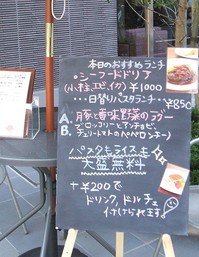 本日のおすすめランチ
シーフードドリア
(小柱、エビ、イカ) ¥1000
日替りパスタランチ ¥850
A. 豚と香味野菜のラグー
B. ブロッコリーとアンチョビ、
チェリートマトのペペロンチーノ
パスタもライスも
大盛無料
+¥200で
ドリンク、ドルチェ
付けられます